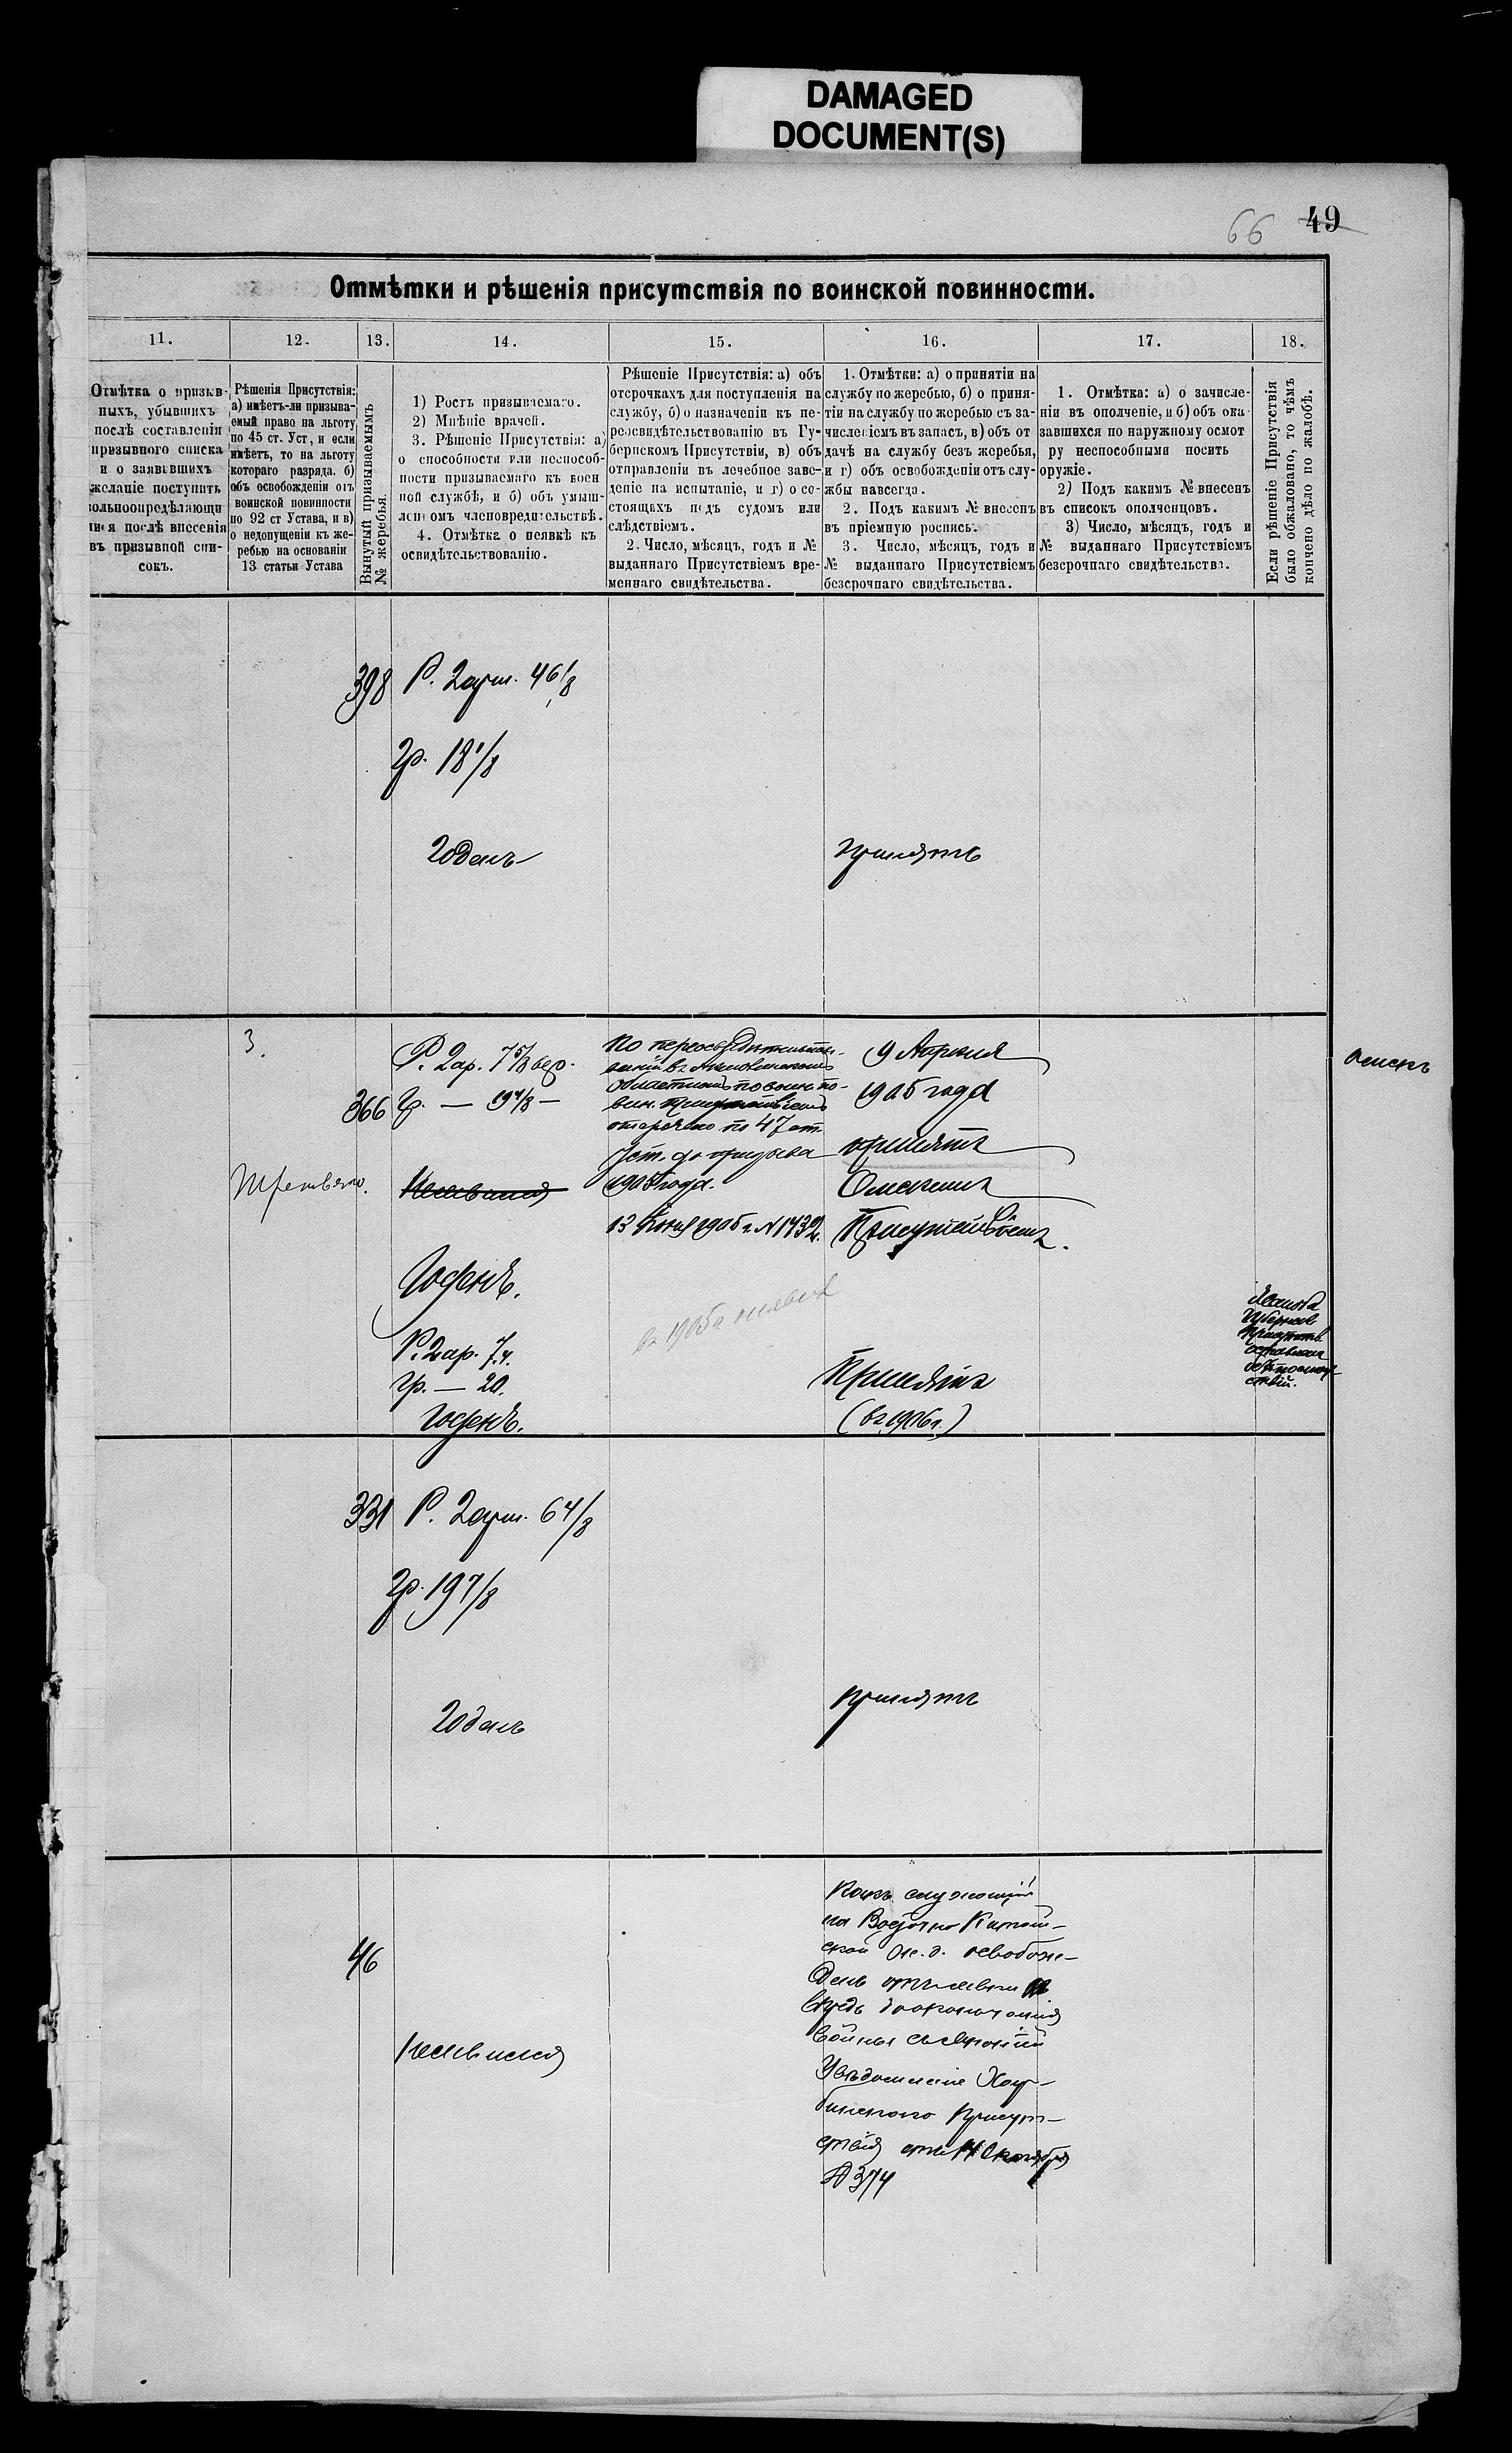 DAMAGED
DOCUMENT(S)
66 49
Отмѣтки и рѣшенія присутствія по воинской повинности.
11.
12.
13.
14.
15.
16.
17.
18.
Отмѣтка о призыв-
ныхъ, убывшихъ
послѣ составленія
призывного списка
и о заявившихъ
желаніе поступить
вольноопредѣляющи
мися послѣ внесенія
въ призывной спи-
сокъ.
Рѣшенія Присутствія:
а) имѣетъ-ли призыва-
емый право на льготу
по 45 ст. Уст, и если
имѣетъ, то на льготу
котораго разряда. б)
объ освобожденіи отъ
воинской повинности
по 92 ст Устава, и в)
о недопущеніи къ же-
ребью на основаніи
13 статьи Устава
Вынутый призываемымъ
№ жеребья.
1) Ростъ призываемаго.
2) Мнѣніе врачей.
3. Рѣшеніе Присутствія: а)
о способности или неспособ-
ности призываемаго къ воен
ной службѣ, и б) объ умыш-
ленномъ членовредительствѣ.
4. Отмѣтка о неявкѣ къ
освидѣтельствованію.
Рѣшеніе Присутствія: а) объ
отсрочкахъ для поступленія на
службу, б) о назначеніи къ пе-
реосвидѣтельствованію въ Гу-
бернскомъ Присутствіи, в) объ
отправленіи въ лечебное заве-
деніе на испытаніе, и г) о со-
стоящихъ подъ судомъ или
слѣдствіемъ.
2. Число, мѣсяцъ, годъ и №
выданнаго Присутствіемъ вре-
меннаго свидѣтельства.
1. Отмѣтки: а) о принятіи на
службу по жеребью, б) о приня-
тіи на службу по жеребью съ за-
численіемъ въ запасъ, в) объ от
дачѣ на службу безъ жеребья,
и г) объ освобожденіи отъ слу-
жбы навсегда.
2. Подъ какимъ № внесенъ
въ пріемную роспись.
3. Число, мѣсяцъ, годъ и
№ выданнаго Присутствіемъ
безсрочнаго свидѣтельства.
1. Отмѣтка: а) о зачисле-
ніи въ ополченіе, и б) объ ока
завшихся по наружному осмот
ру неспособными носить
оружіе.
2) Подъ какимъ № внесенъ
въ списокъ ополченцовъ.
3) Число, мѣсяцъ, годъ и
№ выданнаго Присутствіемъ
безсрочнаго свидѣтельства.
Если рѣшеніе Присутствія
было обжаловано, то чѣмъ
кончено дѣло по жалобѣ.
398
Р. 2 арш. 4 6/8
гр. 18 1/8
годенъ
принятъ
3.
366
Третьяго.
Р. 2 ар. 7 5/8 вер.
Гр. — 19 4/8 —
Неявился
Годенъ.
Р. 2 ар. 7 ч.
гр. — 20.
годенъ.
По переосвидѣтельство-
ваніи въ Акмолинскомъ
областномъ по воин. по-
вин. Присутствіемъ
отсрочено по 47 ст.
Уст. до призыва
1905 года.
13 1905 г. N 1432.
въ 1905 г.
9 Апрѣля
1905 года
принятъ
Омскимъ
Присутствіемъ.
Принятъ
(въ 1906 г.)
Жалоба
Губернск.
Присутств.
оставлена
безъ послѣд-
ствій.
331
Р. 2 арш. 6 4/8
гр. 19 7/8
годенъ
принятъ
46
неявился
Какъ служащій
на Восточно Китай-
ской ж. д. освобож-
денъ отъ явки
впредь до окончанія
войны съ Японіей
Увѣдомленіе Хар-
бинскаго Присут-
ствія отъ 14 Октября
N 374